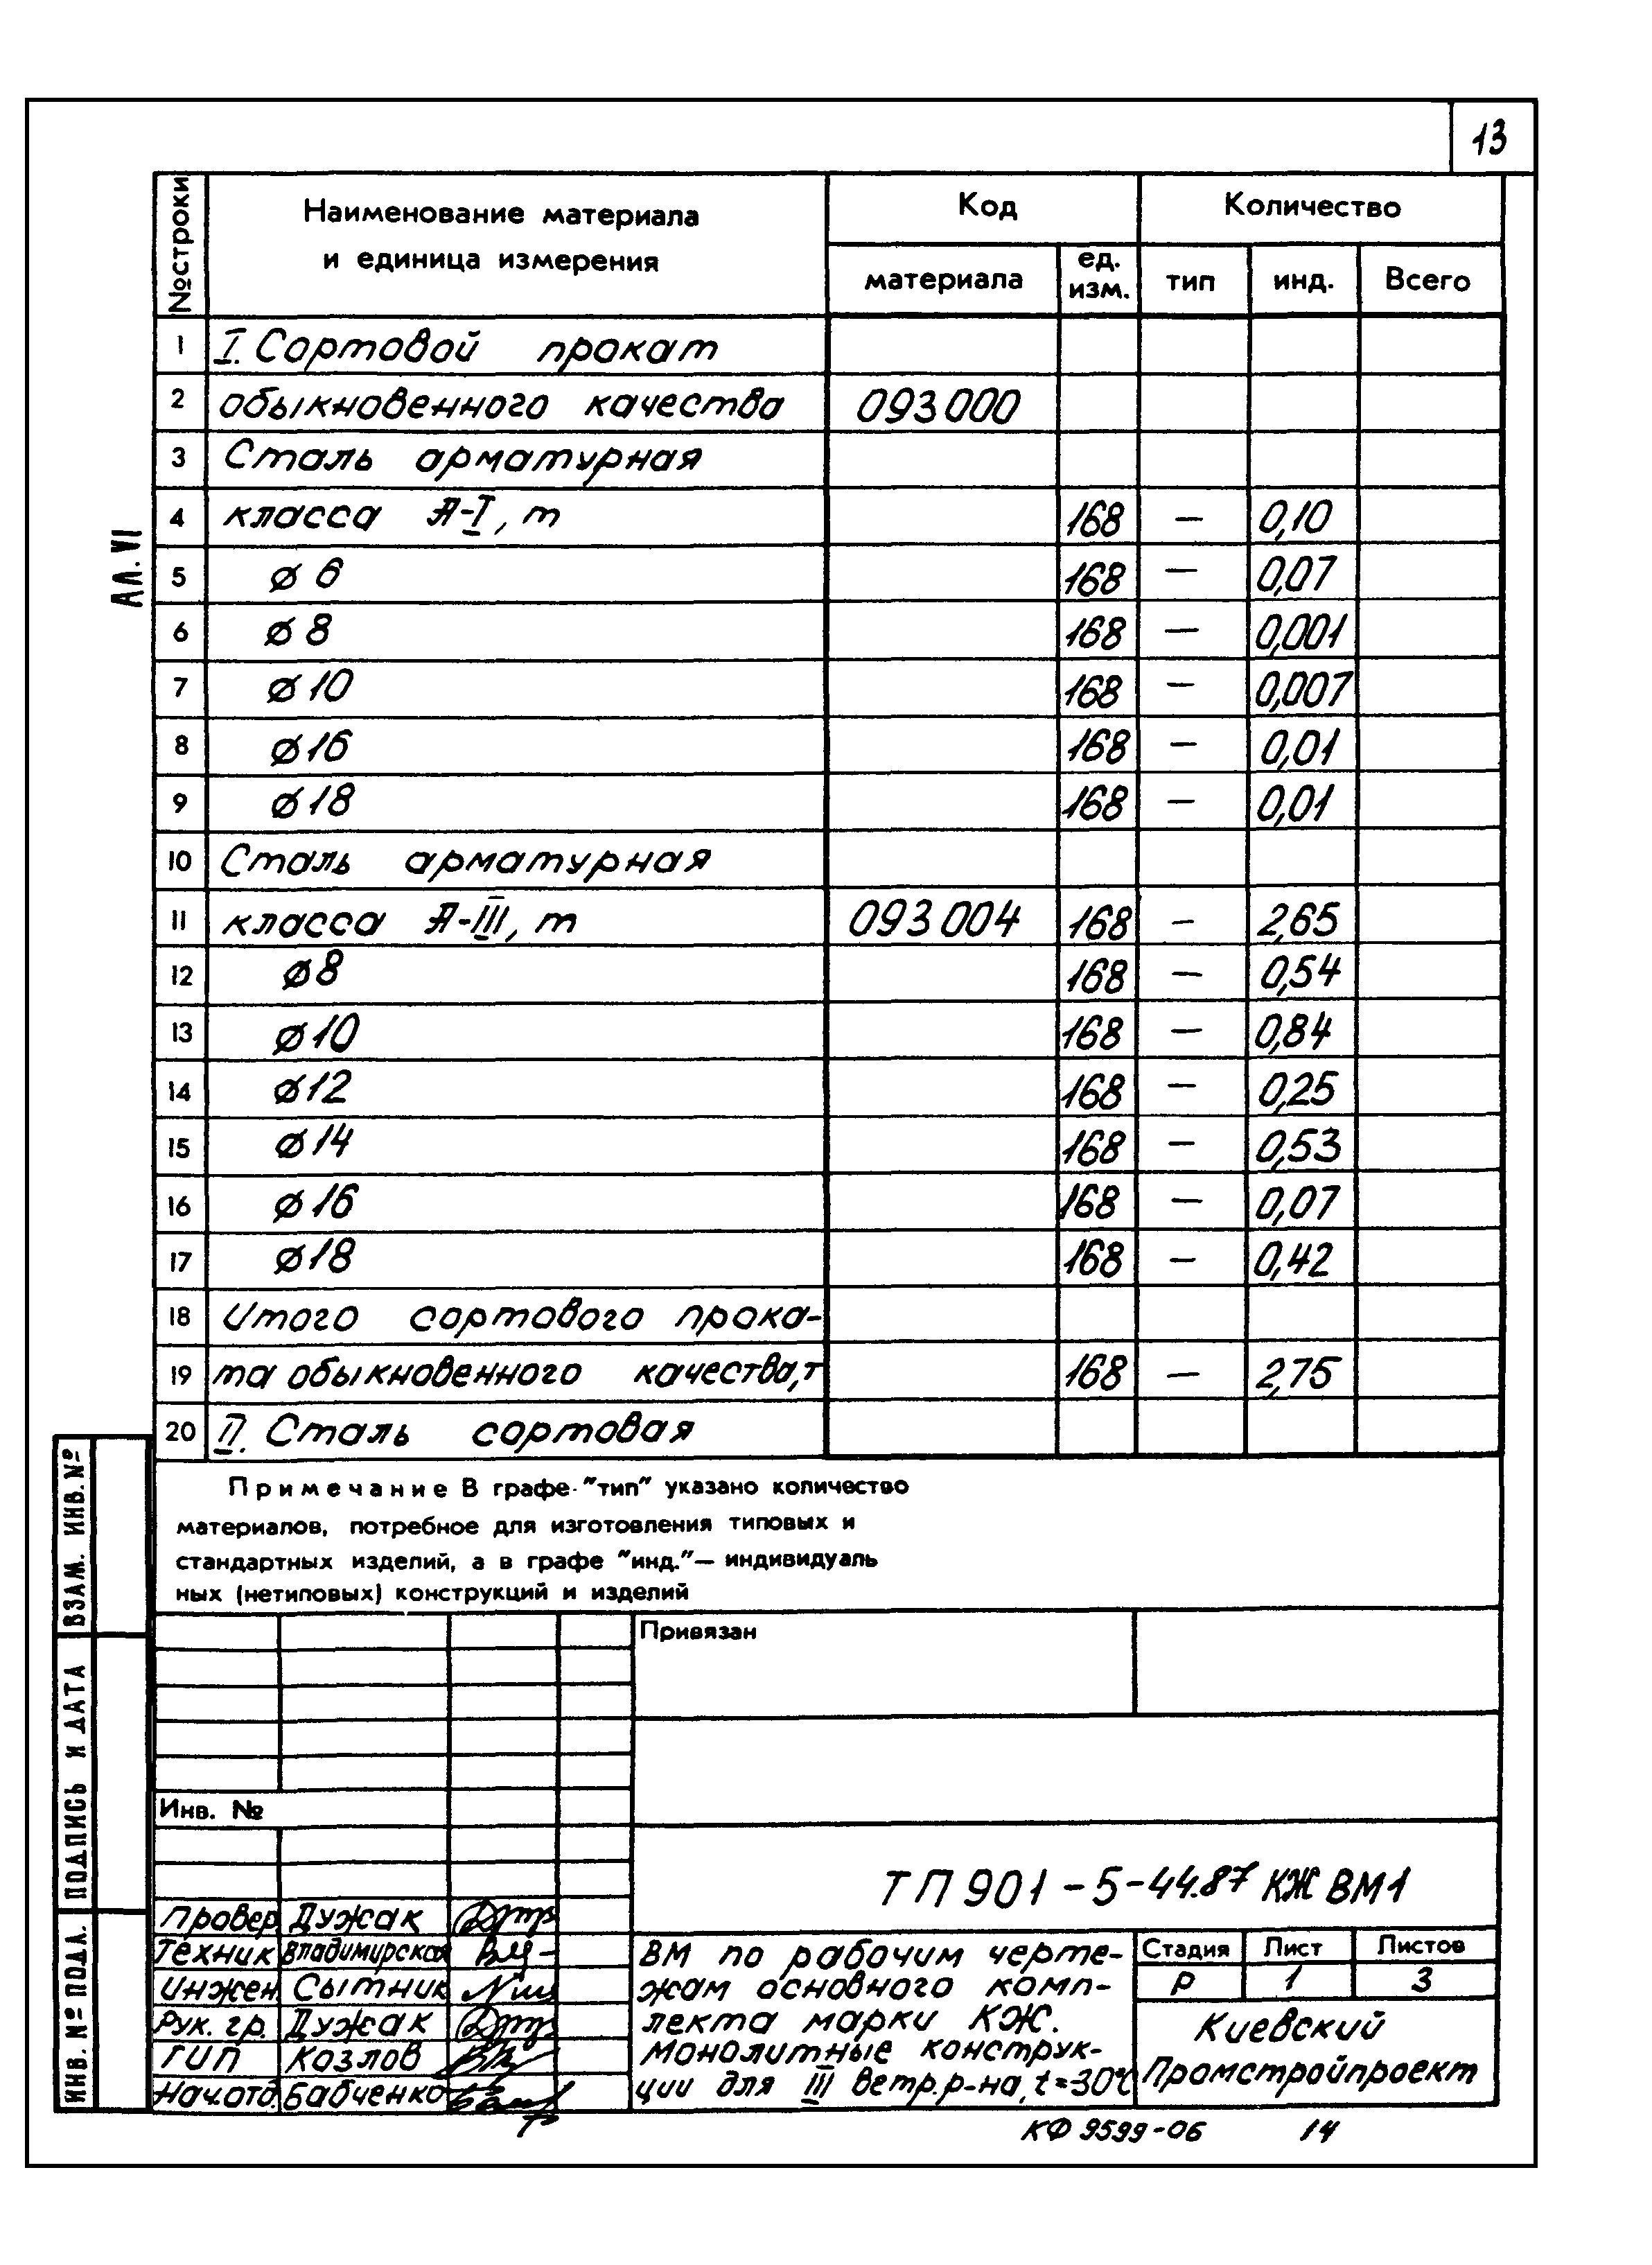 13
№ строки Наименование материала и единица измерения Код Количество
материала ед. изм. тип инд. Всего
1 I. Сортовой прокат
2 обыкновенного качества 093000
3 Сталь арматурная
4 класса А-I, т 168 — 0,10
5 ø 6 168 — 0,07
6 ø 8 168 — 0,001
7 ø 10 168 — 0,007
8 ø 16 168 — 0,01
9 ø 18 168 — 0,01
10 Сталь арматурная
11 класса А-III, т 093004 168 — 2,65
12 ø 8 168 — 0,54
13 ø 10 168 — 0,84
14 ø 12 168 — 0,25
15 ø 14 168 — 0,53
16 ø 16 168 — 0,07
17 ø 18 168 — 0,42
18 Итого сортового прока-
19 та обыкновенного качества, т 168 — 2,75
20 II. Сталь сортовая
АЛ. VI
Примечание В графе "тип" указано количество
материалов, потребное для изготовления типовых и
стандартных изделий, а в графе "инд."— индивидуаль
ных (нетиповых) конструкций и изделий
Привязан
Инв. №
ВЗАМ. ИНВ. №
ПОДПИСЬ И ДАТА
ИНВ. № ПОДЛ.
ТП 901-5-44.87 КЖ ВМ1
Провер. Дужак
Техник Владимирская
Инжен. Сытник
Рук. гр. Дужак
ГИП Козлов
Нач.отд. Бабченко
ВМ по рабочим черте-
жам основного комп-
лекта марки КЖ.
Монолитные конструк-
ции для III ветр. р-на, t=-30°С
Стадия Лист Листов
Р 1 3
Киевский
Промстройпроект
КФ 9599-06 14